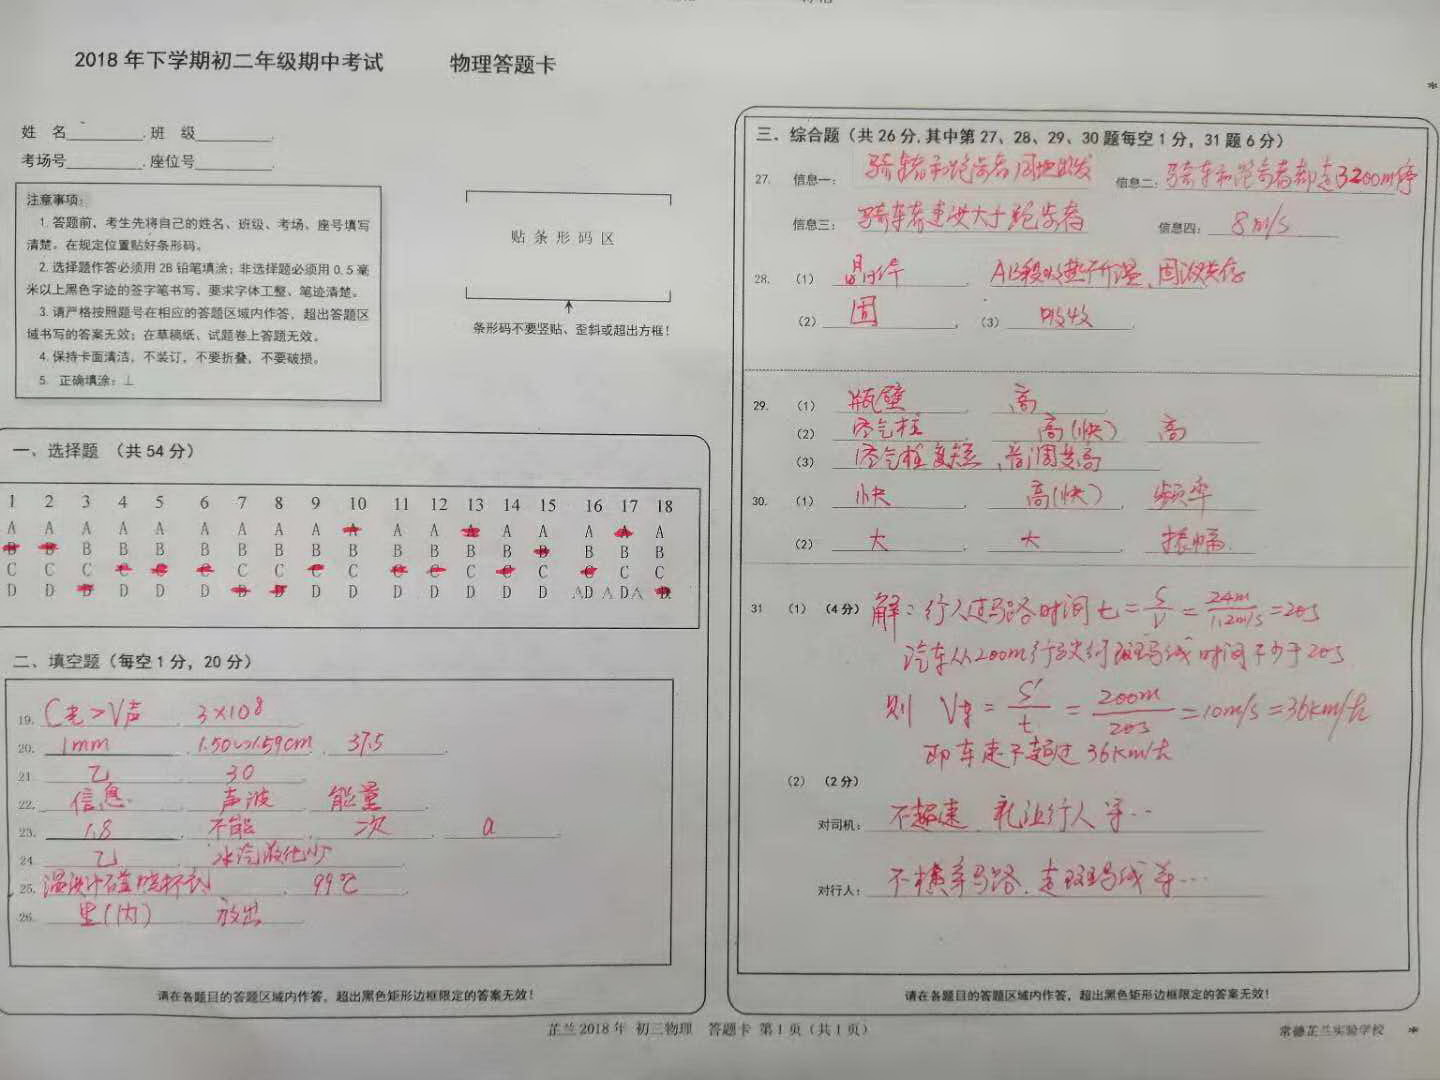 2018年下学期初二年级期中考试 物理答题卡
姓 名 班 级
考场号 座位号
注意事项:
1.答题前,考生先将自己的姓名、班级、考场、座号填写
清楚。在规定位置贴好条形码。
2.选择题作答必须用2B铅笔填涂;非选择题必须用0.5毫
米以上黑色字迹的签字笔书写、要求字体工整、笔迹清楚。
3.请严格按照题号在相应的答题区域内作答,超出答题区
域书写的答案无效;在草稿纸、试题卷上答题无效。
4.保持卡面清洁,不装订,不要折叠,不要破损。
5. 正确填涂:⊥
贴条形码区
条形码不要竖贴、歪斜或超出方框!
一、选择题 (共54分)
1 2 3 4 5 6 7 8 9 10 11 12 13 14 15 16 17 18
A A A A A A A A A A A A A A A A A A
B B B B B B B B B B B B B B B B B B
C C C C C C C C C C C C C C C C C C
D D D D D D D D D D D D D D D AD A DA D
二、填空题(每空1分,20分)
19. C光>V声 3×10⁸
20. 1mm 1.50~1.59cm 37.5
21. 乙 30
22. 信息 声波 能量
23. 1.8 不能 次 a
24. 乙 水汽液化少
25. 温度计碰烧杯 99℃
26. 里(内) 放出
请在各题目的答题区域内作答,超出黑色矩形边框限定的答案无效!
三、综合题(共26分,其中第27、28、29、30题每空1分,31题6分)
27. 信息一: 骑车和跑步者同地出发 信息二: 骑车和跑步者都走3200m停
信息三: 骑车者速度大于跑步者 信息四: 8m/s
28. (1) 晶体 AB段吸热不升温、固液共存
(2) 固 (3) 吸收
29. (1) 瓶壁 高
(2) 空气柱 高(快) 高
(3) 空气柱变短、音调变高
30. (1) 快 高(快) 频率
(2) 大 大 振幅
31 (1) (4分) 解:行人过马路时间 t=S/V=24m/1.2m/s=20s
汽车从200m行驶到斑马线时间不少于20s
则 V车=S′/t=200m/20s=10m/s=36km/h
即车速不超过36km/h
(2) (2分)
对司机: 不超速、礼让行人等…
对行人: 不横穿马路、走斑马线等…
请在各题目的答题区域内作答,超出黑色矩形边框限定的答案无效!
芷兰2018年 初三物理 答题卡 第1页(共1页)
常德芷兰实验学校